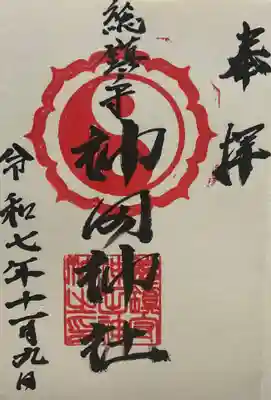 奉拝
総鎮守
神明神社
令和七年十一月九日